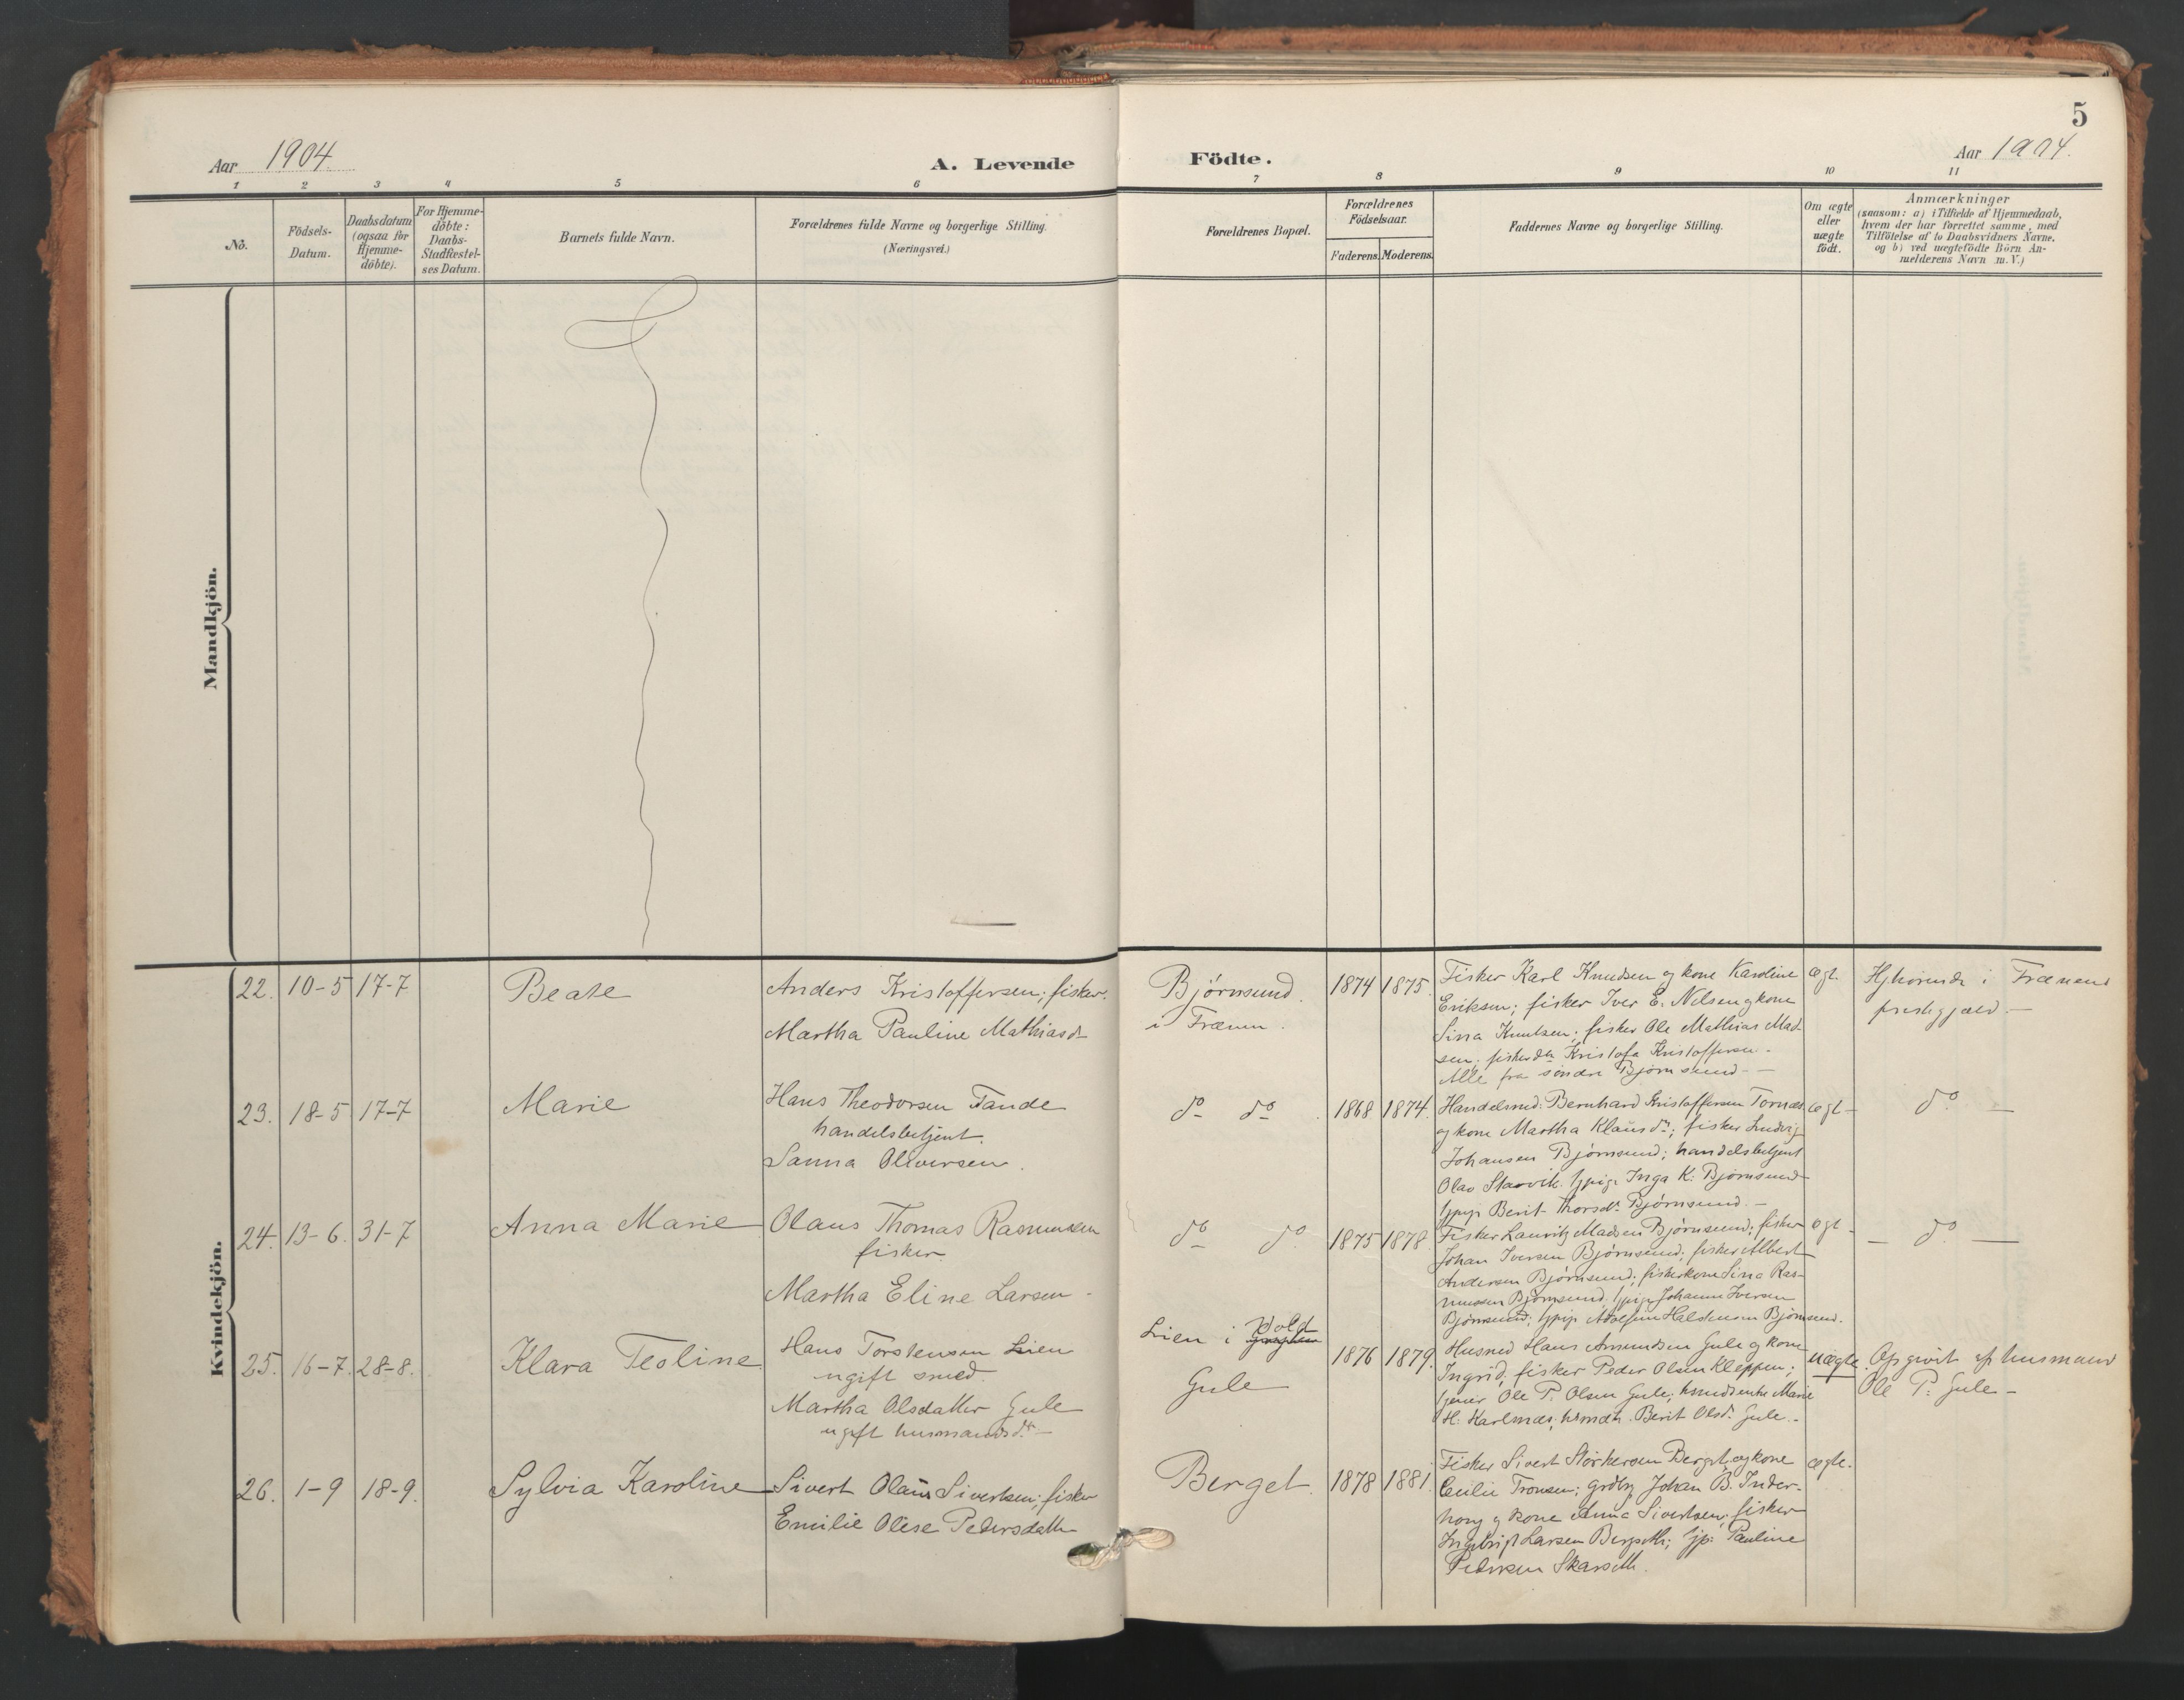 5
Aar 1904.
A. Levende Födte.
Aar 1904.
1 2 3 4 5 6 7 8 9 10 11
Nö.
Födsels-
Datum.
Daabsdatum
(ogsaa för
Hjemme-
döbte).
For Hjemme-
döbte:
Daabs-
Stadfæstel-
ses Datum.
Barnets fulde Navn.
Forældrenes fulde Navne og borgerlige Stilling.
(Næringsvei.)
Forældrenes Bopæl.
Forældrenes
Födselsaar.
Faderens. Moderens.
Faddernes Navne og borgerlige Stilling.
Om ægte
eller
uægte
födt.
Anmærkninger
(saasom: a) i Tilfælde af Hjemmedaab,
hvem der har forrettet samme, med
Tilföielse af to Daabsvidners Navne.
og b) ved uægtefödte Börn An-
melderens Navn m. V.)
Mandkjön.
Kvindekjön.
22. 10-5 17-7
Beate
Anders Kristoffersen; fisker.
Martha Pauline Mathiasd.
Bjørnsund.
i Frænen.
1874 1875.
Fisker Karl Knudsen og kone Karoline
Eriksen; fisker Iver E. Nilsen og kone
Sina Knutsen; fisker Ole Mathias Mad-
sen; fiskerd. Kristofa Kristoffersen.
Alle fra søndre Bjørnsund.
ægt.
Hjhørende i Frænens
prestegjæld.
23. 18-5 17-7
Marie
Hans Theodorsen Tande
handelsbetjent.
Sanna Oliversen.
do do
1868 1874.
Handelsmd. Bernhard Kristoffersen Tornæs
og kone Martha Klausd.; fisker Ludvig
Johansen Bjørnsund; handelsbetjent
Olav Starvik. Inga K. Bjørnsund
Berit Thorsd. Bjørnsund.
ægt
do
24. 13-6. 31-7
Anna Marie
Olaus Thomas Rasmussen
fisker
Martha Eline Larsen
do do
1875 1878.
Fisker Lauritz Madsen Bjørnsund; fisker
Johan Iversen Bjørnsund; fisker Albert
Andersen Bjørnsund; fiskerkone Sina Ras-
mussen Bjørnsund. Johanne Iversen
Bjørnsund; Halstensen Bjørnsund.
ægt
do
25. 16-7. 28-8.
Klara Teoline
Hans Torstensen Lien
ugift smed.
Martha Olsdatter Gule
ugift husmandsdt.
Lien i Vold
Gule
1876 1879.
Husmd Hans Amundsen Gule og kone
Ingrid; fisker Peder Olsen Kleppen;
Ole P. Olsen Gule; Marie
H. Karlsnæs; Berit Olsd. Gule.
uægte.
Opgivet af husmand
Ole P. Gule
26. 1-9 18-9.
Sylvia Karoline
Sivert Olaus Sivertsen; fisker
Emilie Olise Pedersdatter
Berget.
1878 1881.
Fisker Sivert Størkersen Berget og kone
Cecilie Tronsen; Johan B. Inder-
og kone Anna Sivertsen; fisker
Ingebrigt Larsen Bergseth; Pauline
Pedersen Skarseth.
ægte.